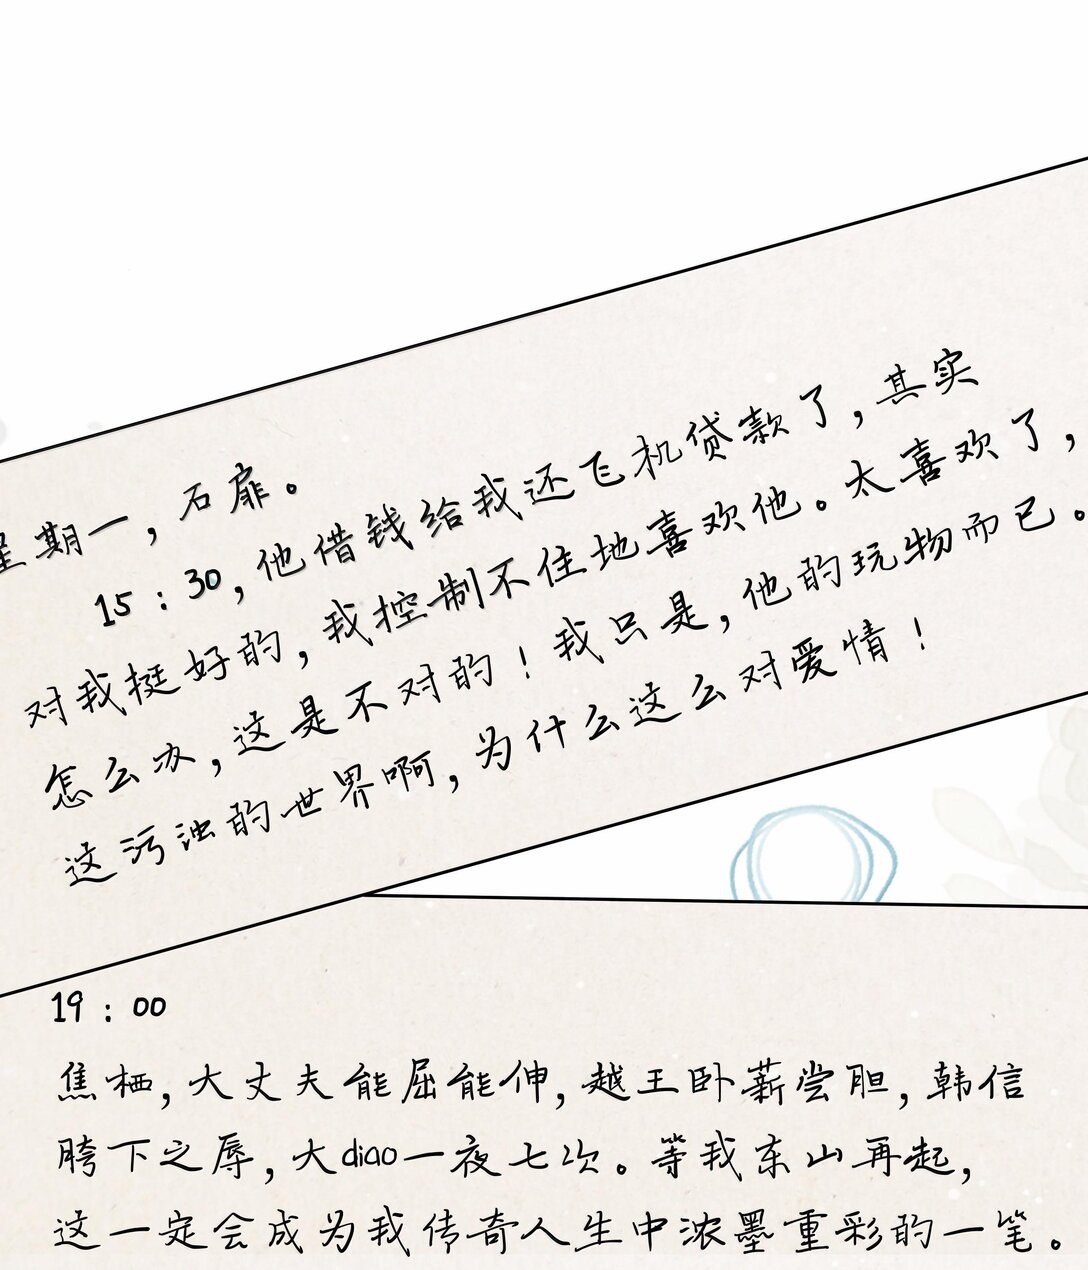 星期一，石扉。
15：30，他借钱给我还飞机贷款了，其实
对我挺好的，我控制不住地喜欢他。太喜欢了，
怎么办，这是不对的！我只是，他的玩物而已。
这污浊的世界啊，为什么这么对爱情！
19：00
焦栖，大丈夫能屈能伸，越王卧薪尝胆，韩信
胯下之辱，大diao一夜七次。等我东山再起，
这一定会成为我传奇人生中浓墨重彩的一笔。